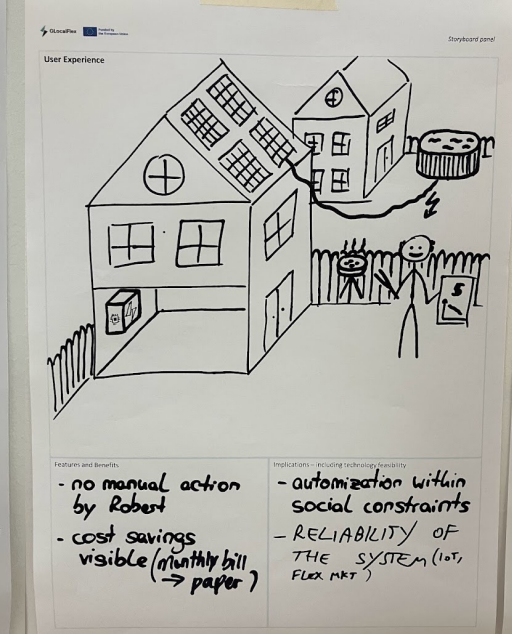 GLocalFlex
Funded by
the European Union
Storyboard panel
User Experience
$
Features and Benefits
- no manual action
by Robert
- cost savings
visible (monthly bill
→ paper)
Implications – including technology feasibility
- automization within
social constraints
- RELIABILITY OF
THE SYSTEM (IoT,
FLEX MKT)